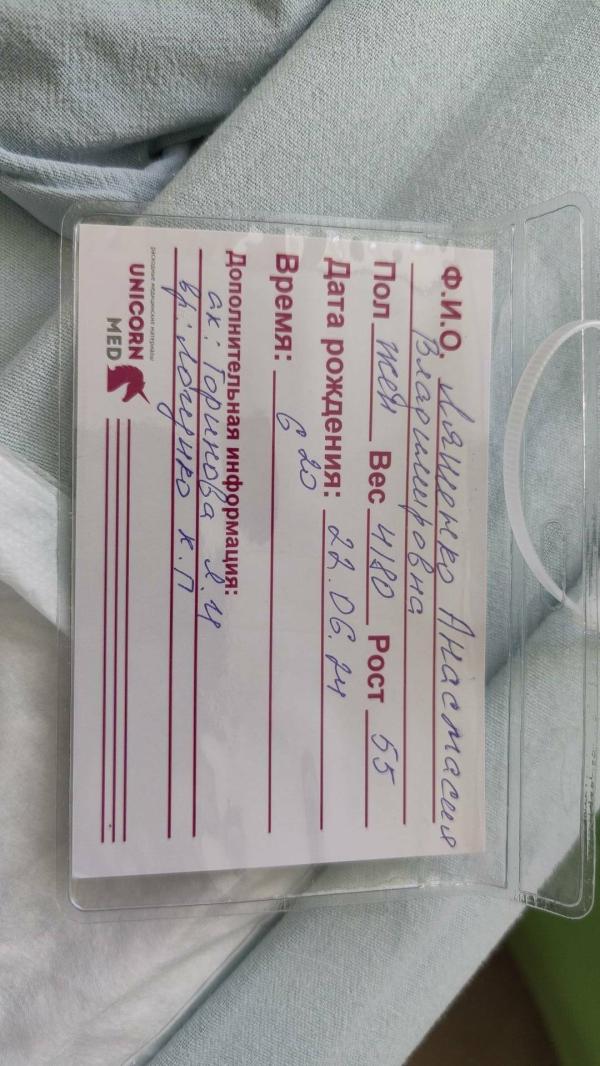 Ф.И.О. Ляшенко Анастасия
Владимировна
Пол жен Вес 4180 Рост 55
Дата рождения: 22.06.24
Время: 6 20
Дополнительная информация:
ак: Горинова Л.И
вр: К.П
расходные медицинские материалы
UNICORN
MED